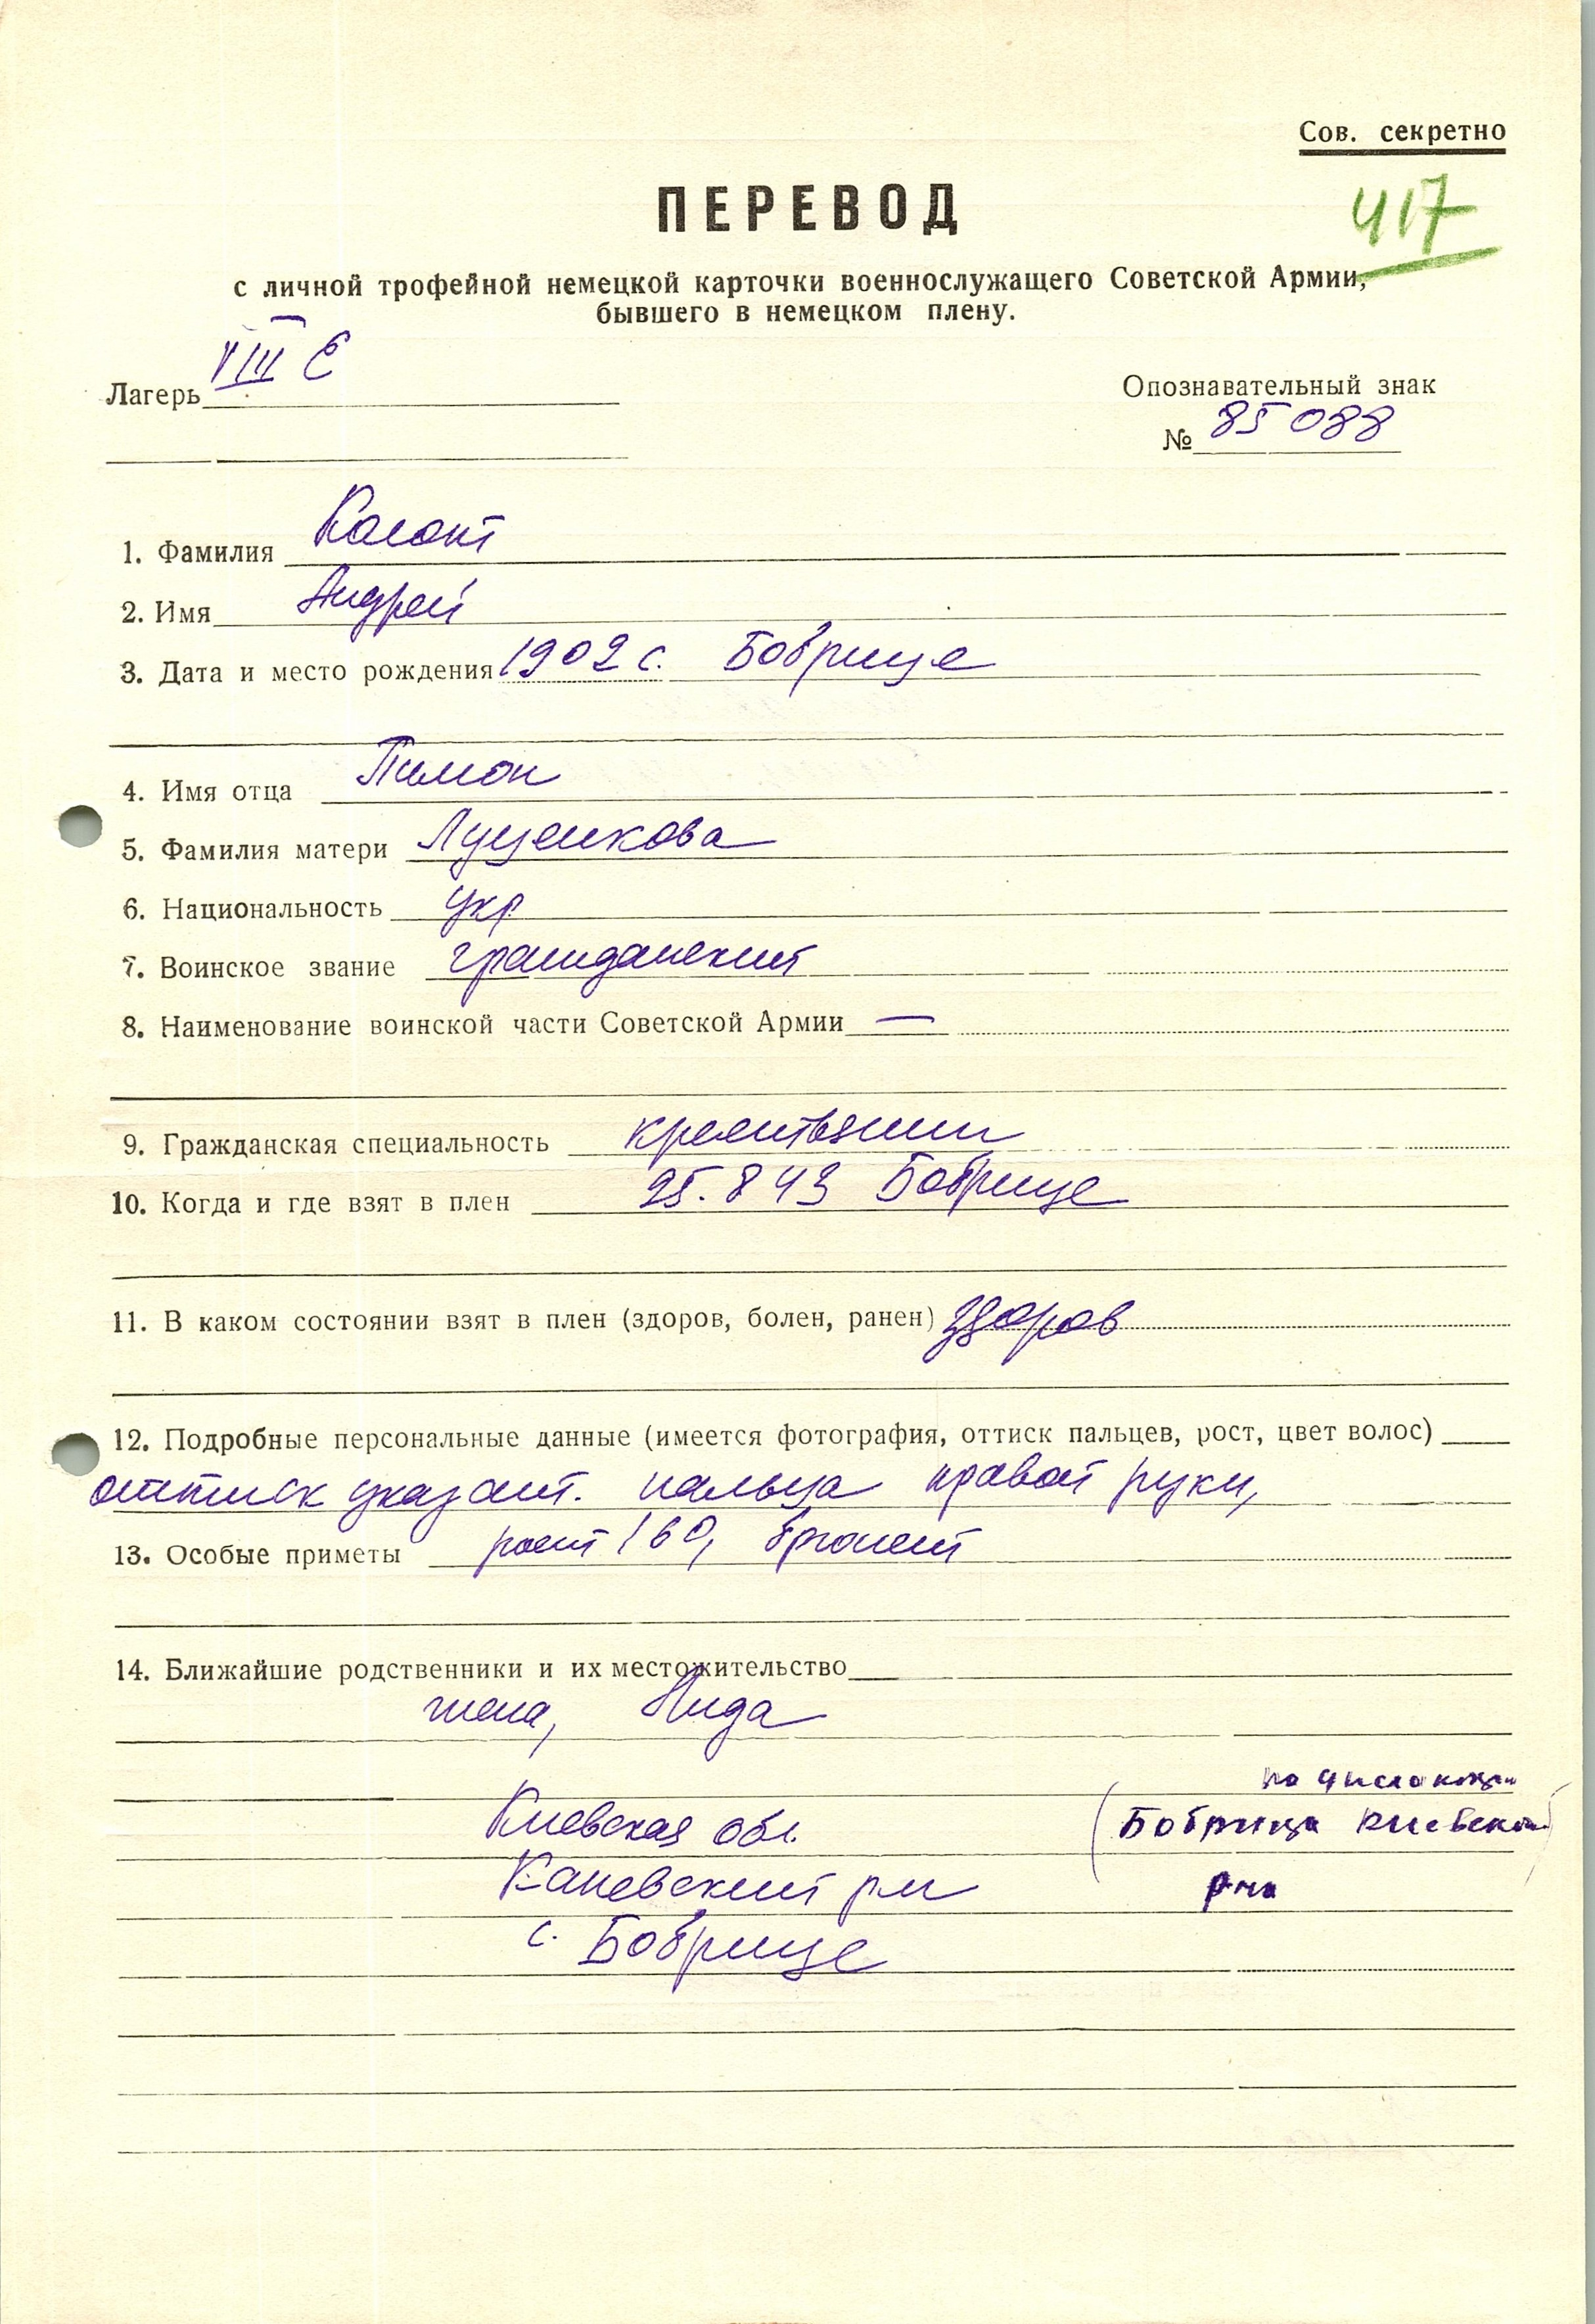 Сов. секретно
ПЕРЕВОД
417
с личной трофейной немецкой карточки военнослужащего Советской Армии,
бывшего в немецком плену.
Лагерь VIII Е
Опознавательный знак
№ 85088
1. Фамилия
2. Имя Андрей
3. Дата и место рождения 1902 с. Бобрице
4. Имя отца Пимон
5. Фамилия матери Луценкова
6. Национальность укр
7. Воинское звание гражданский
8. Наименование воинской части Советской Армии —
9. Гражданская специальность
10. Когда и где взят в плен 25.8 43 Бобрице
11. В каком состоянии взят в плен (здоров, болен, ранен) здоров
12. Подробные персональные данные (имеется фотография, оттиск пальцев, рост, цвет волос)
оттиск указат. пальца правой руки,
13. Особые приметы рост 160, брюнет
14. Ближайшие родственники и их местожительство
жена,
по
Киевская обл.
(Бобрица Киевской
Каневский рн
р-на)
с. Бобрице